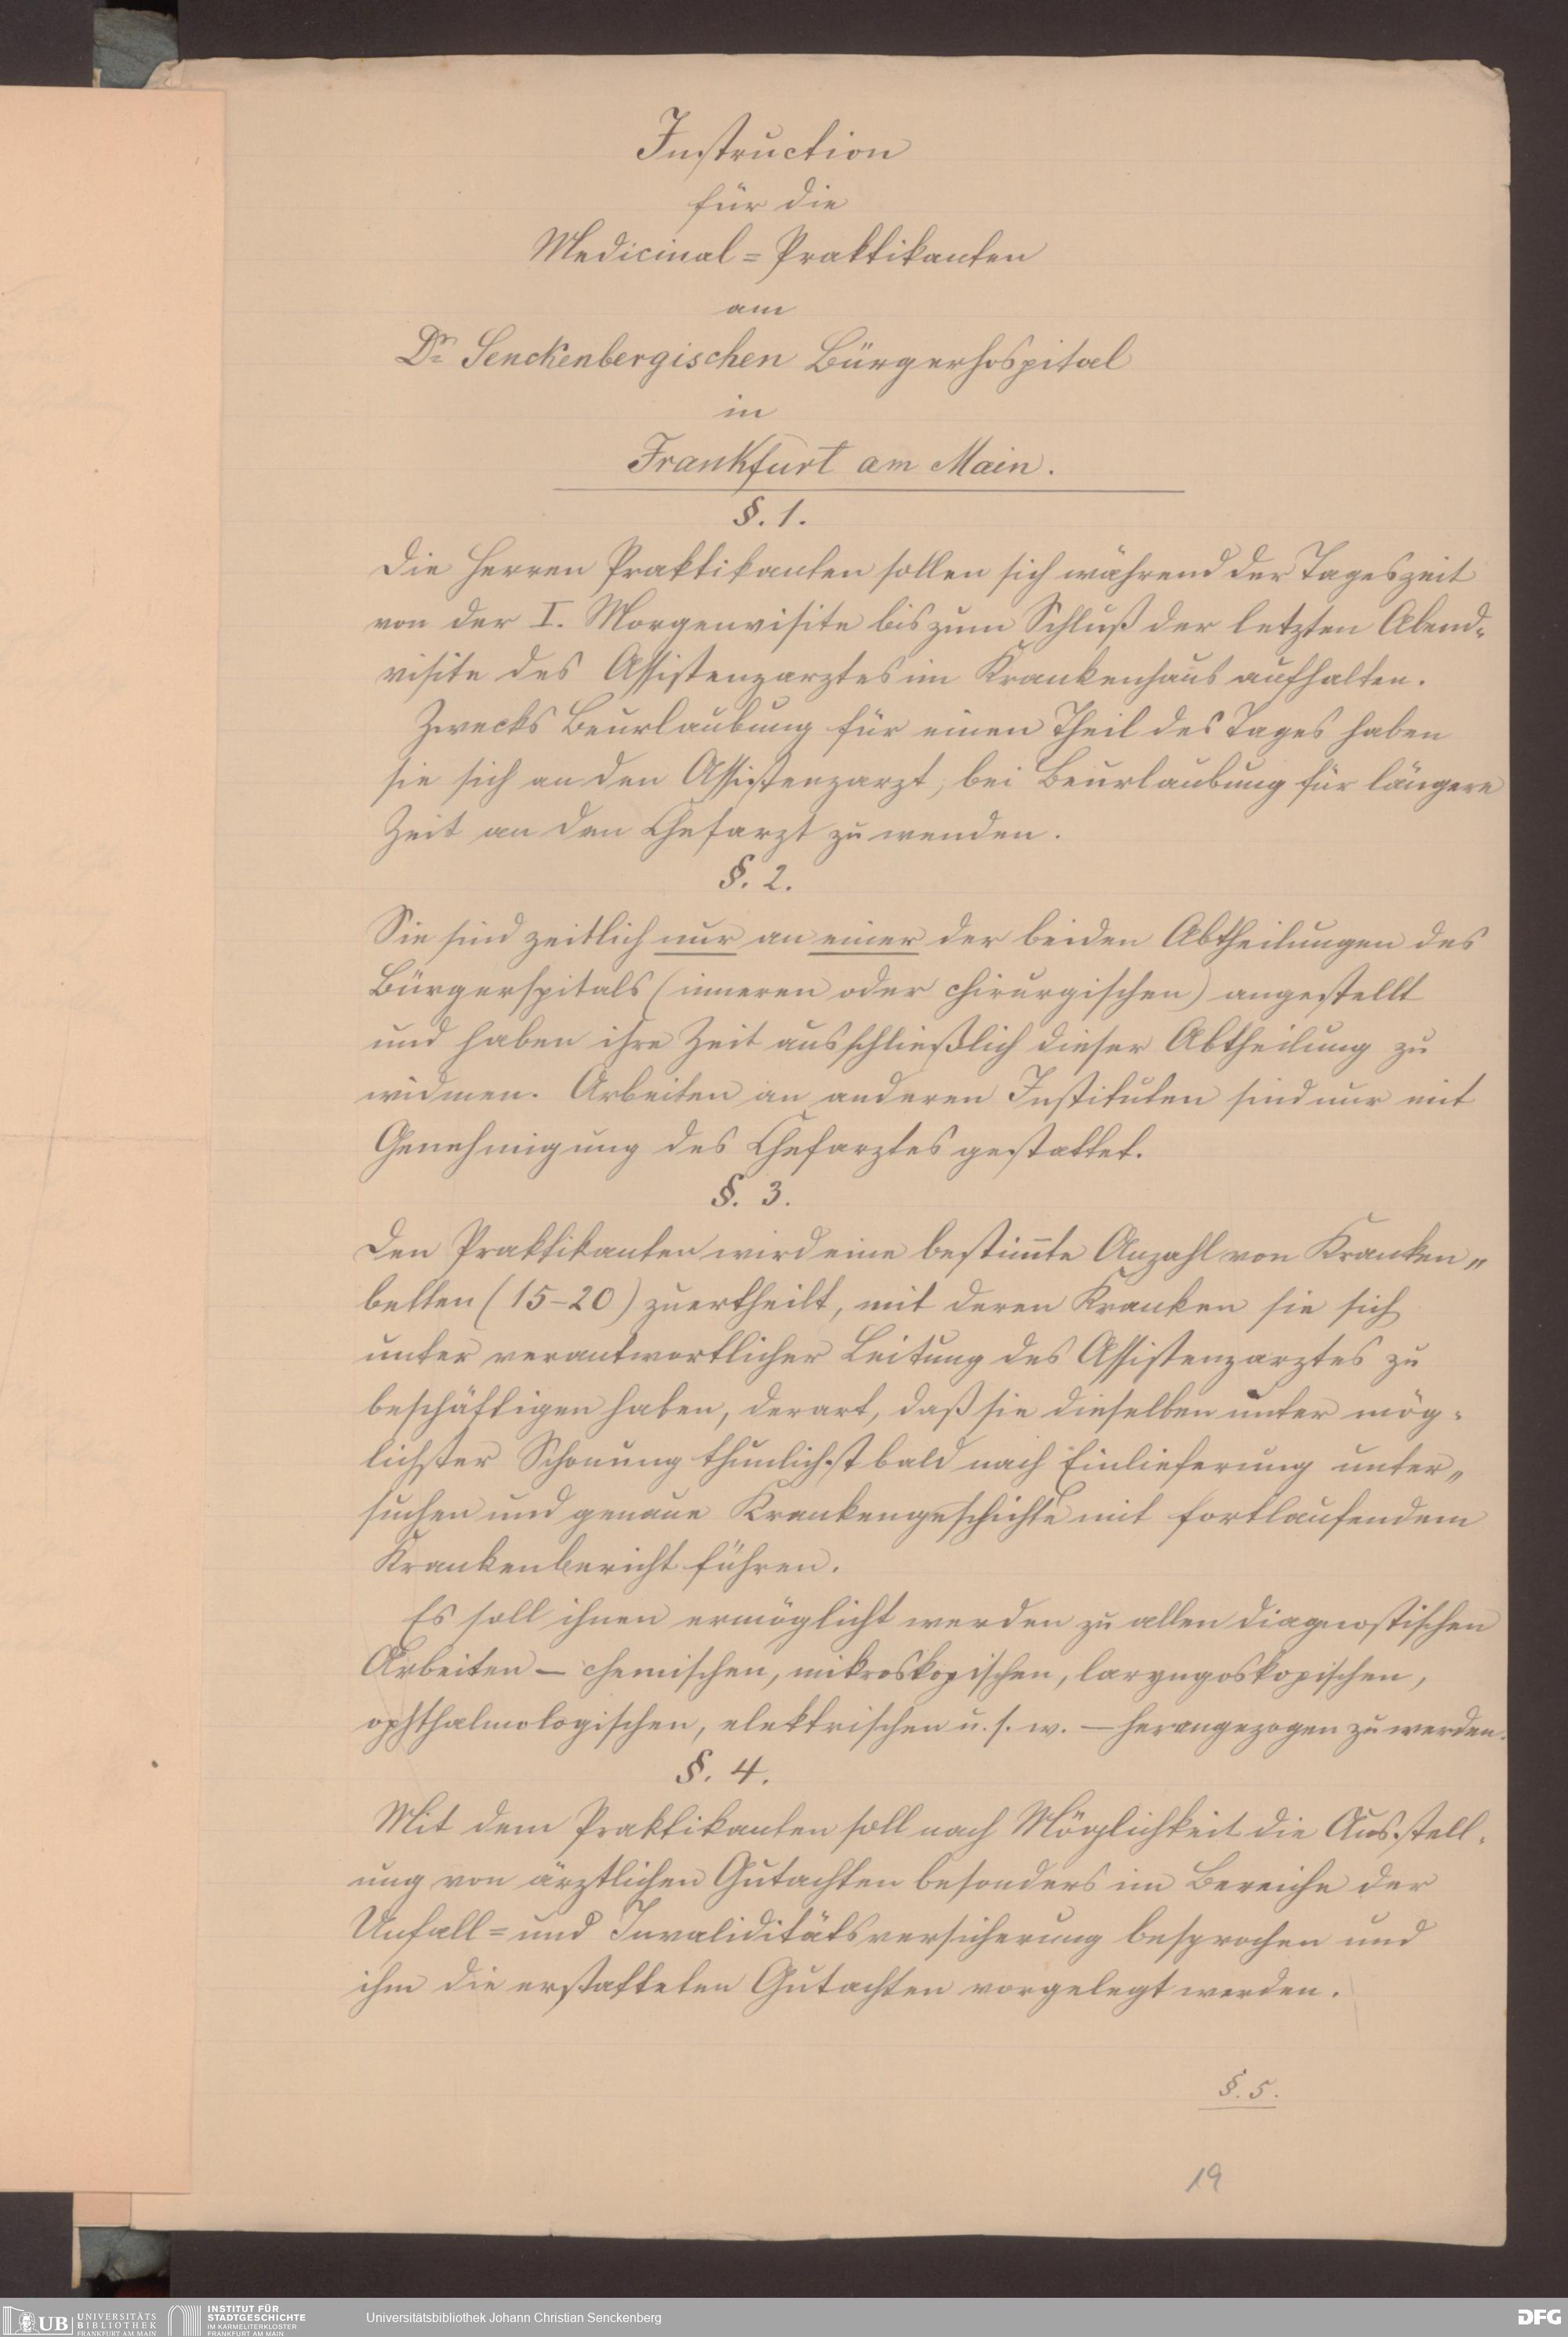 Instruction
für die
Medicinal=Praktikanten
am
Dr. Senckenbergischen Bürgerhospital
in
Frankfurt am Main.
§. 1.
Die Herren Praktikanten sollen sich während der Tageszeit
von der I. Morgenvisite bis zum Schluß der letzten Abend=
visite des Assistenzarztes im Krankenhaus aufhalten.
Zwecks Beurlaubung für einen Theil des Tages haben
sie sich an den Assistenzarzt, bei Beurlaubung für längere
Zeit an den Chefarzt zu wenden.
§. 2.
Sie sind zeitlich nur an einer der beiden Abtheilungen des
Bürgerspitals (inneren oder chirurgischen) angestellt
und haben ihre Zeit ausschließlich dieser Abtheilung zu
widmen. Arbeiten an anderen Instituten sind nur mit
Genehmigung des Chefarztes gestattet.
§. 3.
Den Praktikanten wird eine bestim̅te Anzahl von Kranken„
betten (15–20) zuertheilt, mit deren Kranken sie sich
unter verantwortlicher Leitung des Assistenzarztes zu
beschäftigen haben, derart, daß sie dieselben unter mög=
lichster Schonung thunlichst bald nach Einlieferung unter„
suchen und genaue Krankengeschichte mit fortlaufendem
Krankenbericht führen.
Es soll ihnen ermöglicht werden zu allen diagnostischen
Arbeiten – chemischen, mikroskopischen, laryngoskopischen,
ophthalmologischen, elektrischen u. s. w. – herangezogen zu werden.
§. 4.
Mit dem Praktikanten soll nach Möglichkeit die Ausstell=
ung von ärztlichen Gutachten besonders im Bereiche der
Unfall= und Invaliditätsversicherung besprochen und
ihm die erstatteten Gutachten vorgelegt werden.
§. 5.
19
UB UNIVERSITÄTS
BIBLIOTHEK
FRANKFURT AM MAIN
INSTITUT FÜR
STADTGESCHICHTE
IM KARMELITERKLOSTER
FRANKFURT AM MAIN
Universitätsbibliothek Johann Christian Senckenberg
DFG